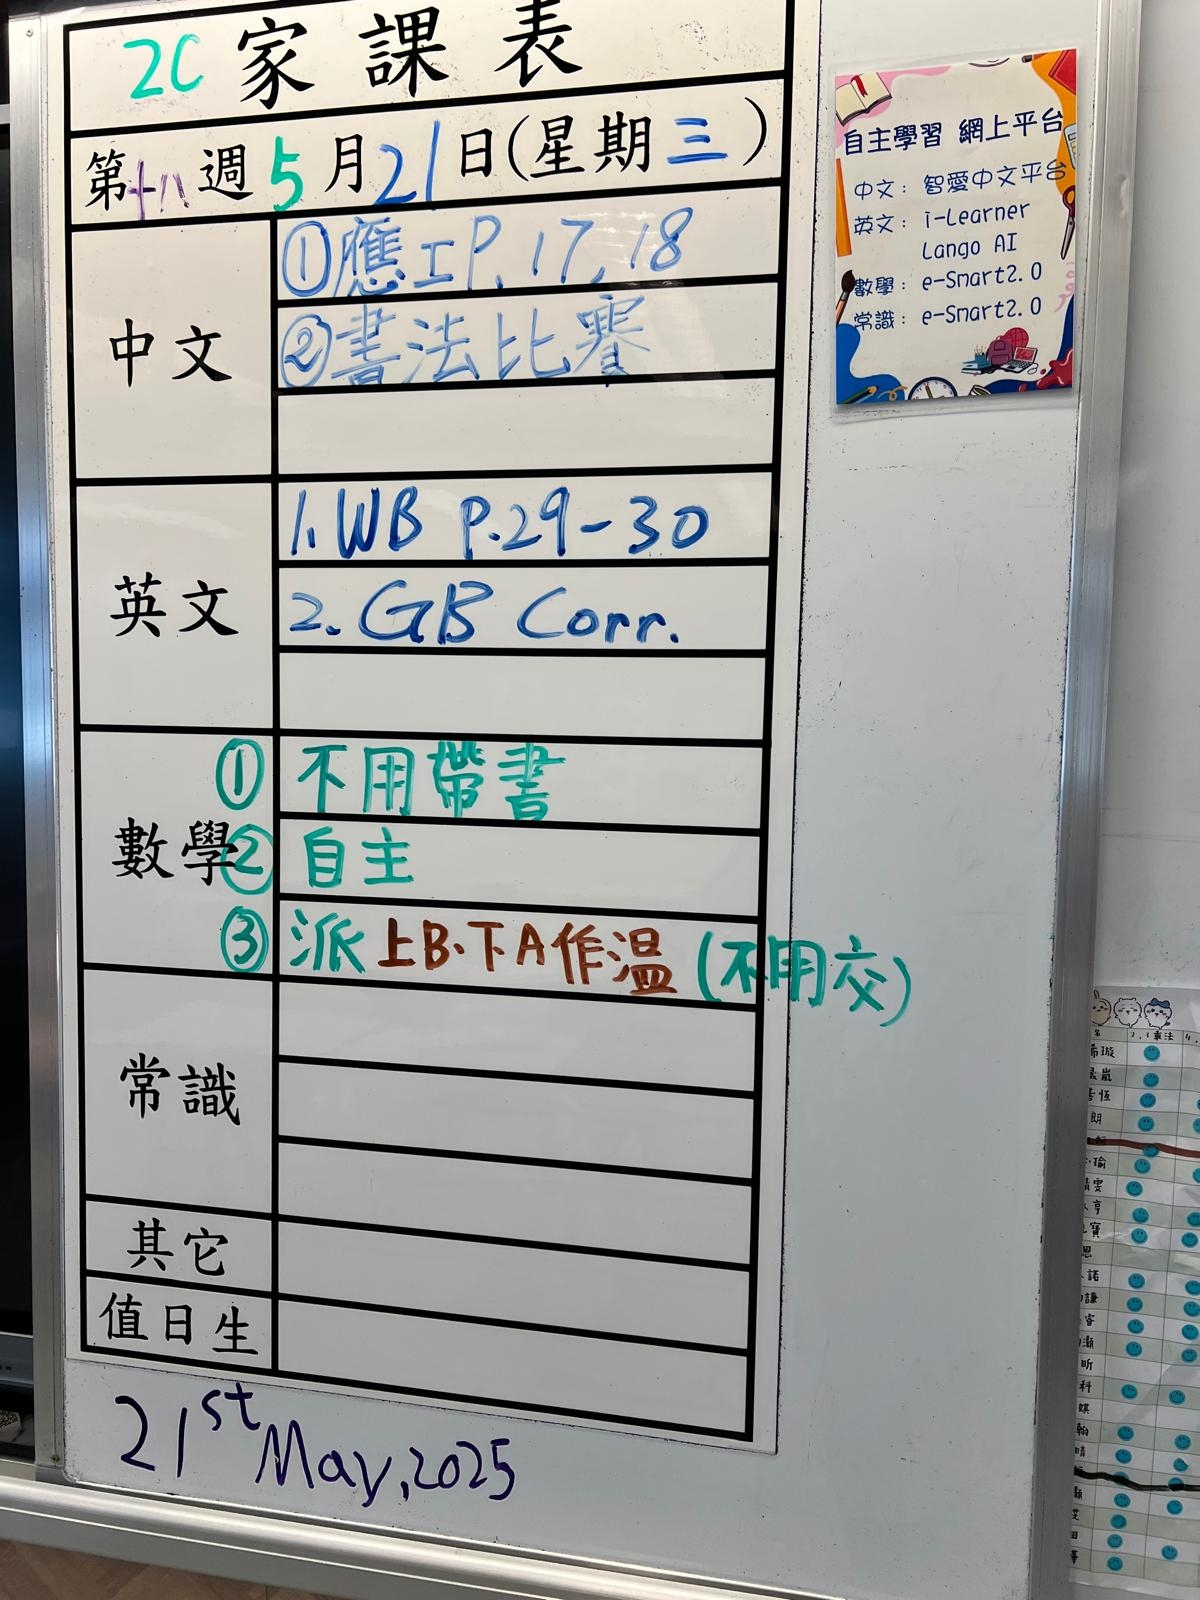 2C 家課表
第十八週5月21日(星期三)
中文
①應工P.17,18
②書法比賽
英文
1.WB P.29-30
2.GB Corr.
數學
①不用帶書
②自主
③派上B.下A作溫(不用交)
常識
其它
值日生
21st May,2025
自主學習 網上平台
中文：智愛中文平台
英文：i-Learner
Lango AI
數學：e-Smart2.0
常識：e-Smart2.0
名 2,3乘法
希璇
嵐
恆
朗
瑜
晴雯
亨
寶
恩
諾
謙
睿
灝
昕
科
祺
翰
晴
灝
芷
田